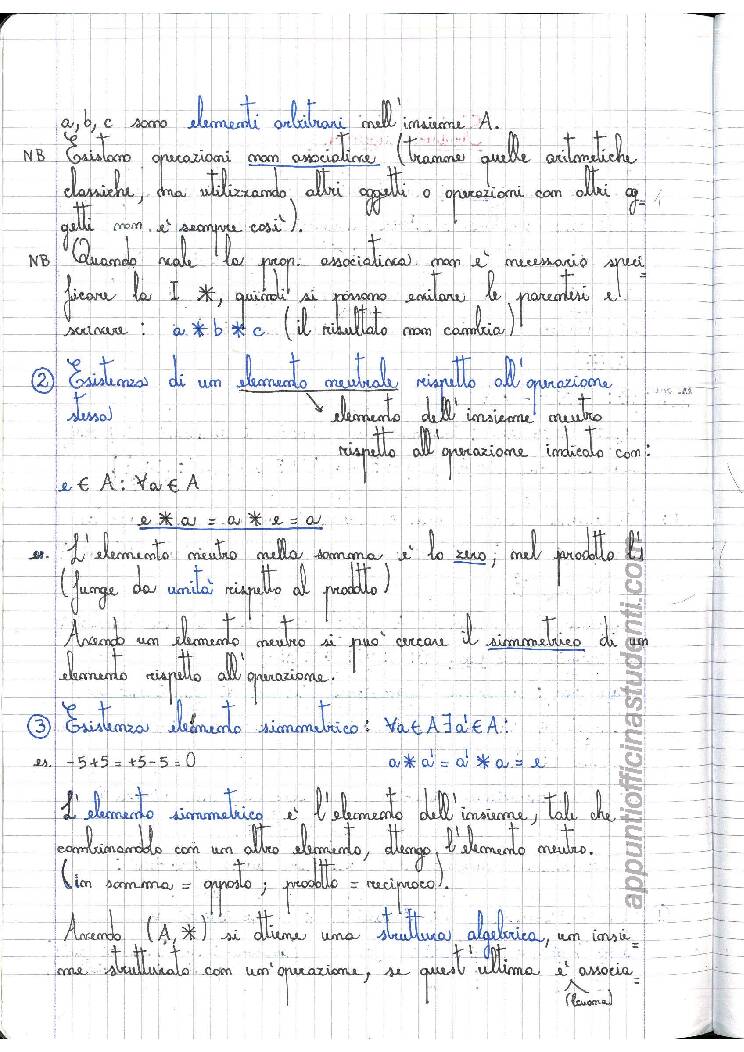 a, b, c sono elementi arbitrari nell'insieme A.
NB Esistono operazioni non associative (tranne quelle aritmetiche
classiche, ma utilizzando altri oggetti o operazioni con altri og=
getti non è sempre così).
NB Quando vale la prop. associativa non è necessario speci=
ficare la I *, quindi si possono evitare le parentesi e
scrivere: a * b * c (il risultato non cambia)
② Esistenza di un elemento neutrale rispetto all'operazione
stessa
elemento dell'insieme neutro
rispetto all'operazione indicato con:
e ∈ A: ∀a ∈ A
e * a = a * e = a
es. L'elemento neutro nella somma è lo zero; nel prodotto l'1
(funge da unità rispetto al prodotto)
Avendo un elemento neutro si può cercare il simmetrico di un
elemento rispetto all'operazione.
③ Esistenza elemento simmetrico: ∀a ∈ A ∃a' ∈ A:
es. -5+5 = +5-5 = 0 a * a' = a' * a = e
L'elemento simmetrico è l'elemento dell'insieme, tale che
combinandolo con un altro elemento, ottengo l'elemento neutro.
(in somma = opposto; prodotto = reciproco).
Avendo (A, *) si ottiene una struttura algebrica, un insie=
me strutturato con un'operazione, se quest'ultima è associa=
appuntiofficinastudenti.com